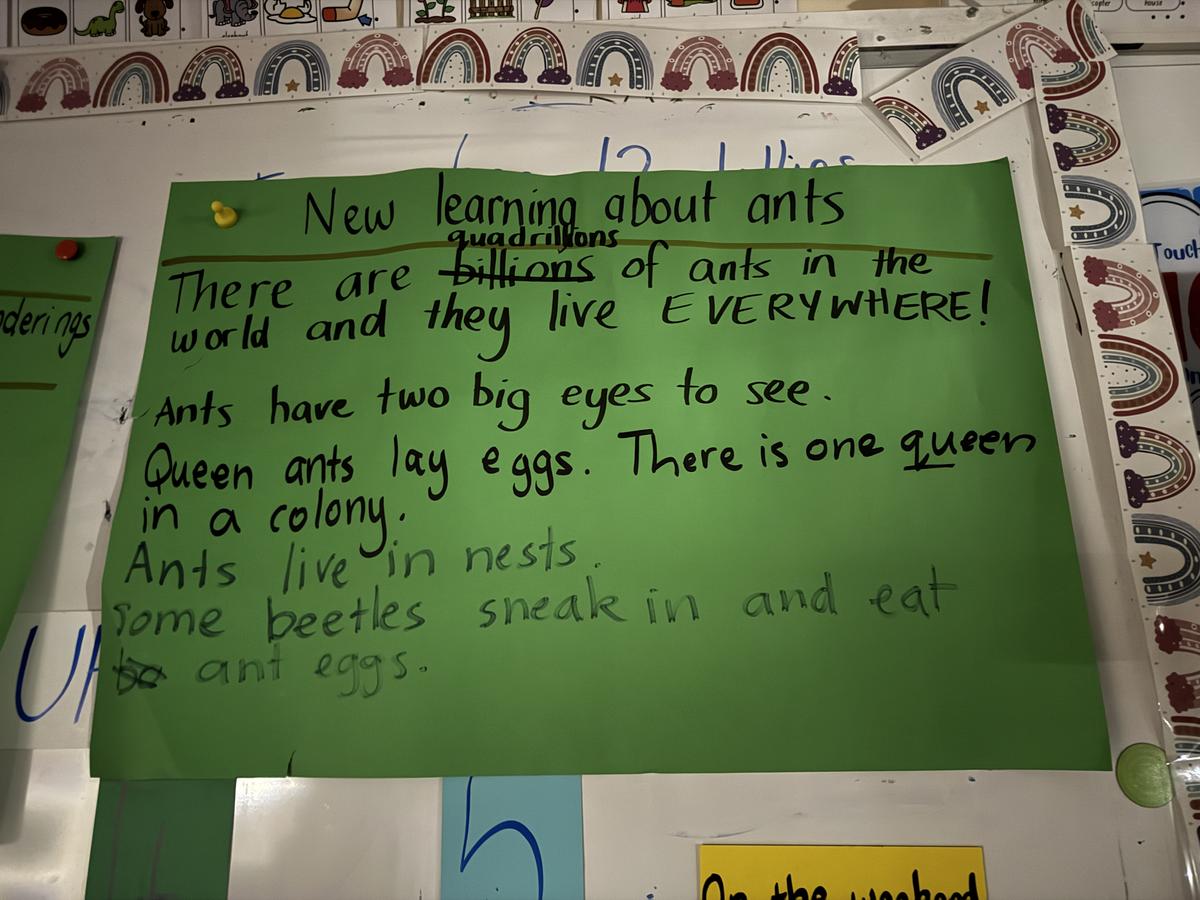 New learning about ants
quadrillions
There are billions of ants in the
world and they live EVERYWHERE!
Ants have two big eyes to see.
Queen ants lay eggs. There is one queen
in a colony.
Ants live in nests.
Some beetles sneak in and eat
ant eggs.
derings
Touch
house
5
On the weekend